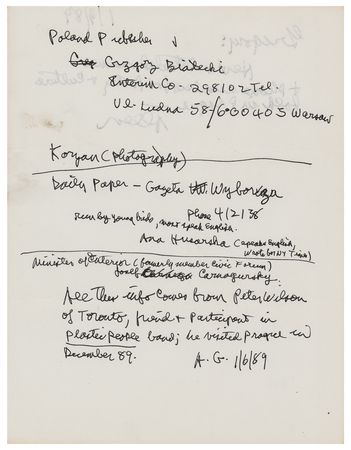 Poland Publisher ↓
Grzgorz Bialecki
Interim Co. 298102 Tel.
Ul. Ludna 58-/600405 Warsaw
Koryan (photography)
Daily Paper – Gazeta Wyborcza
run by young kids, most speak English. Phone 4/2/38
Ana Husarska (speaks English,
wrote for NY Times)
Minister of Interior (formerly member Civic Forum)
Josef Carnogursky.
All this info comes from Peter Wilson
of Toronto, friend + Participant in
plastic people band; he visited Prague in
December 89. A.G. 1/6/89